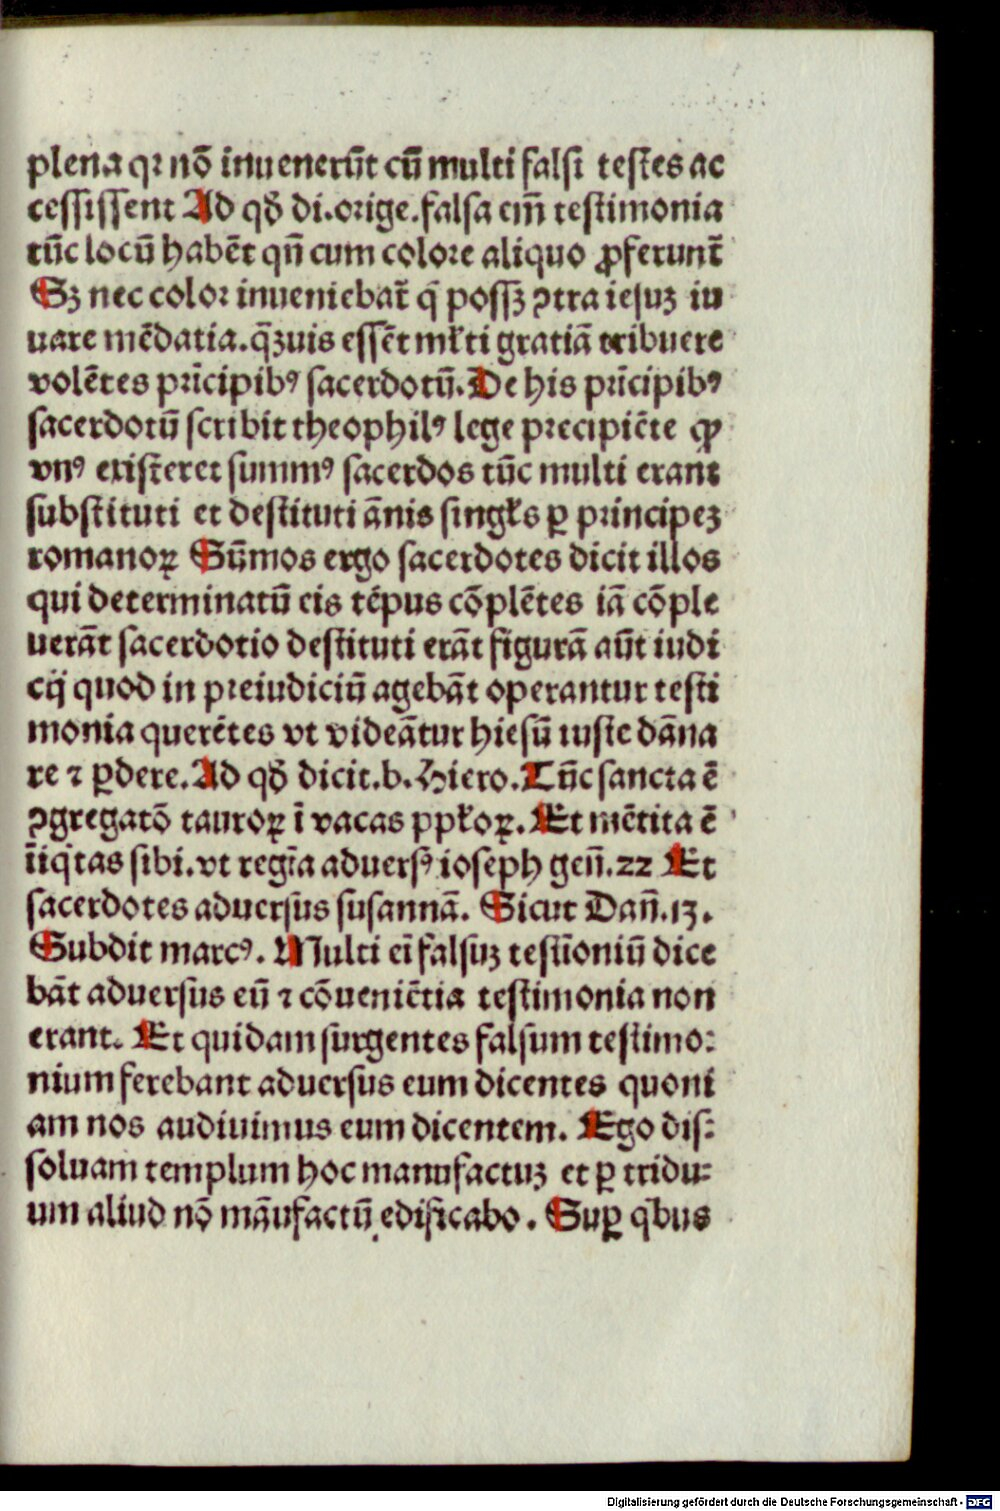 plena qꝛ nō inuenerūt cū multi falsi testes ac
cessissent Ad qđ di.orige.falsa em̄ testimonia
tūc locū habēt qn̄ cum colore aliquo ꝓferunt̄
Sꝫ nec color inueniebat̄ q̄ possꝫ ꝯtra iesuꝫ iu
uare mēdatia.qꝫuis essēt mł̄ti gratiā tribuere
volētes pn̄cipibꝰ sacerdotū.De his pn̄cipibꝰ
sacerdotū scribit theophilꝰ lege precipiēte ꝙ
vnꝰ existeret summꝰ sacerdos tūc multi erant
substituti et destituti ānis singłs ꝑ principeꝫ
romanoꝝ Sūmos ergo sacerdotes dicit illos
qui determinatū eis tēpus cōplētes iā cōple
uerāt sacerdotio destituti erāt figurā aūt iudi
cij quod in preiudiciū agebāt operantur testi
monia querētes vt videātur hiesū iuste dāna
re ⁊ ꝑdere.Ad qđ dicit.b.Hiero.Tūc sancta ē
ꝯgregatō tauroꝝ ī vacas ppłoꝝ. Et mētita ē
īiq̇tas sibi.vt regīa aduersꝰ ioseph gen̄.22 Et
sacerdotes aduersus susannā. Sicut Dan̄.13.
Subdit marcꝰ. Multi ei̅ falsuꝫ testīoniū dice
bāt aduersus eū ⁊ cōueniētia testimonia non
erant. Et quidam surgentes falsum testimo:
nium ferebant aduersus eum dicentes quoni
am nos audiuimus eum dicentem. Ego dis:
soluam templum hoc manufactuꝫ et ꝑ tridu:
um aliud nō māufactū edificabo. Suꝑ q̇bus
Digitalisierung gefördert durch die Deutsche Forschungsgemeinschaft - DFG